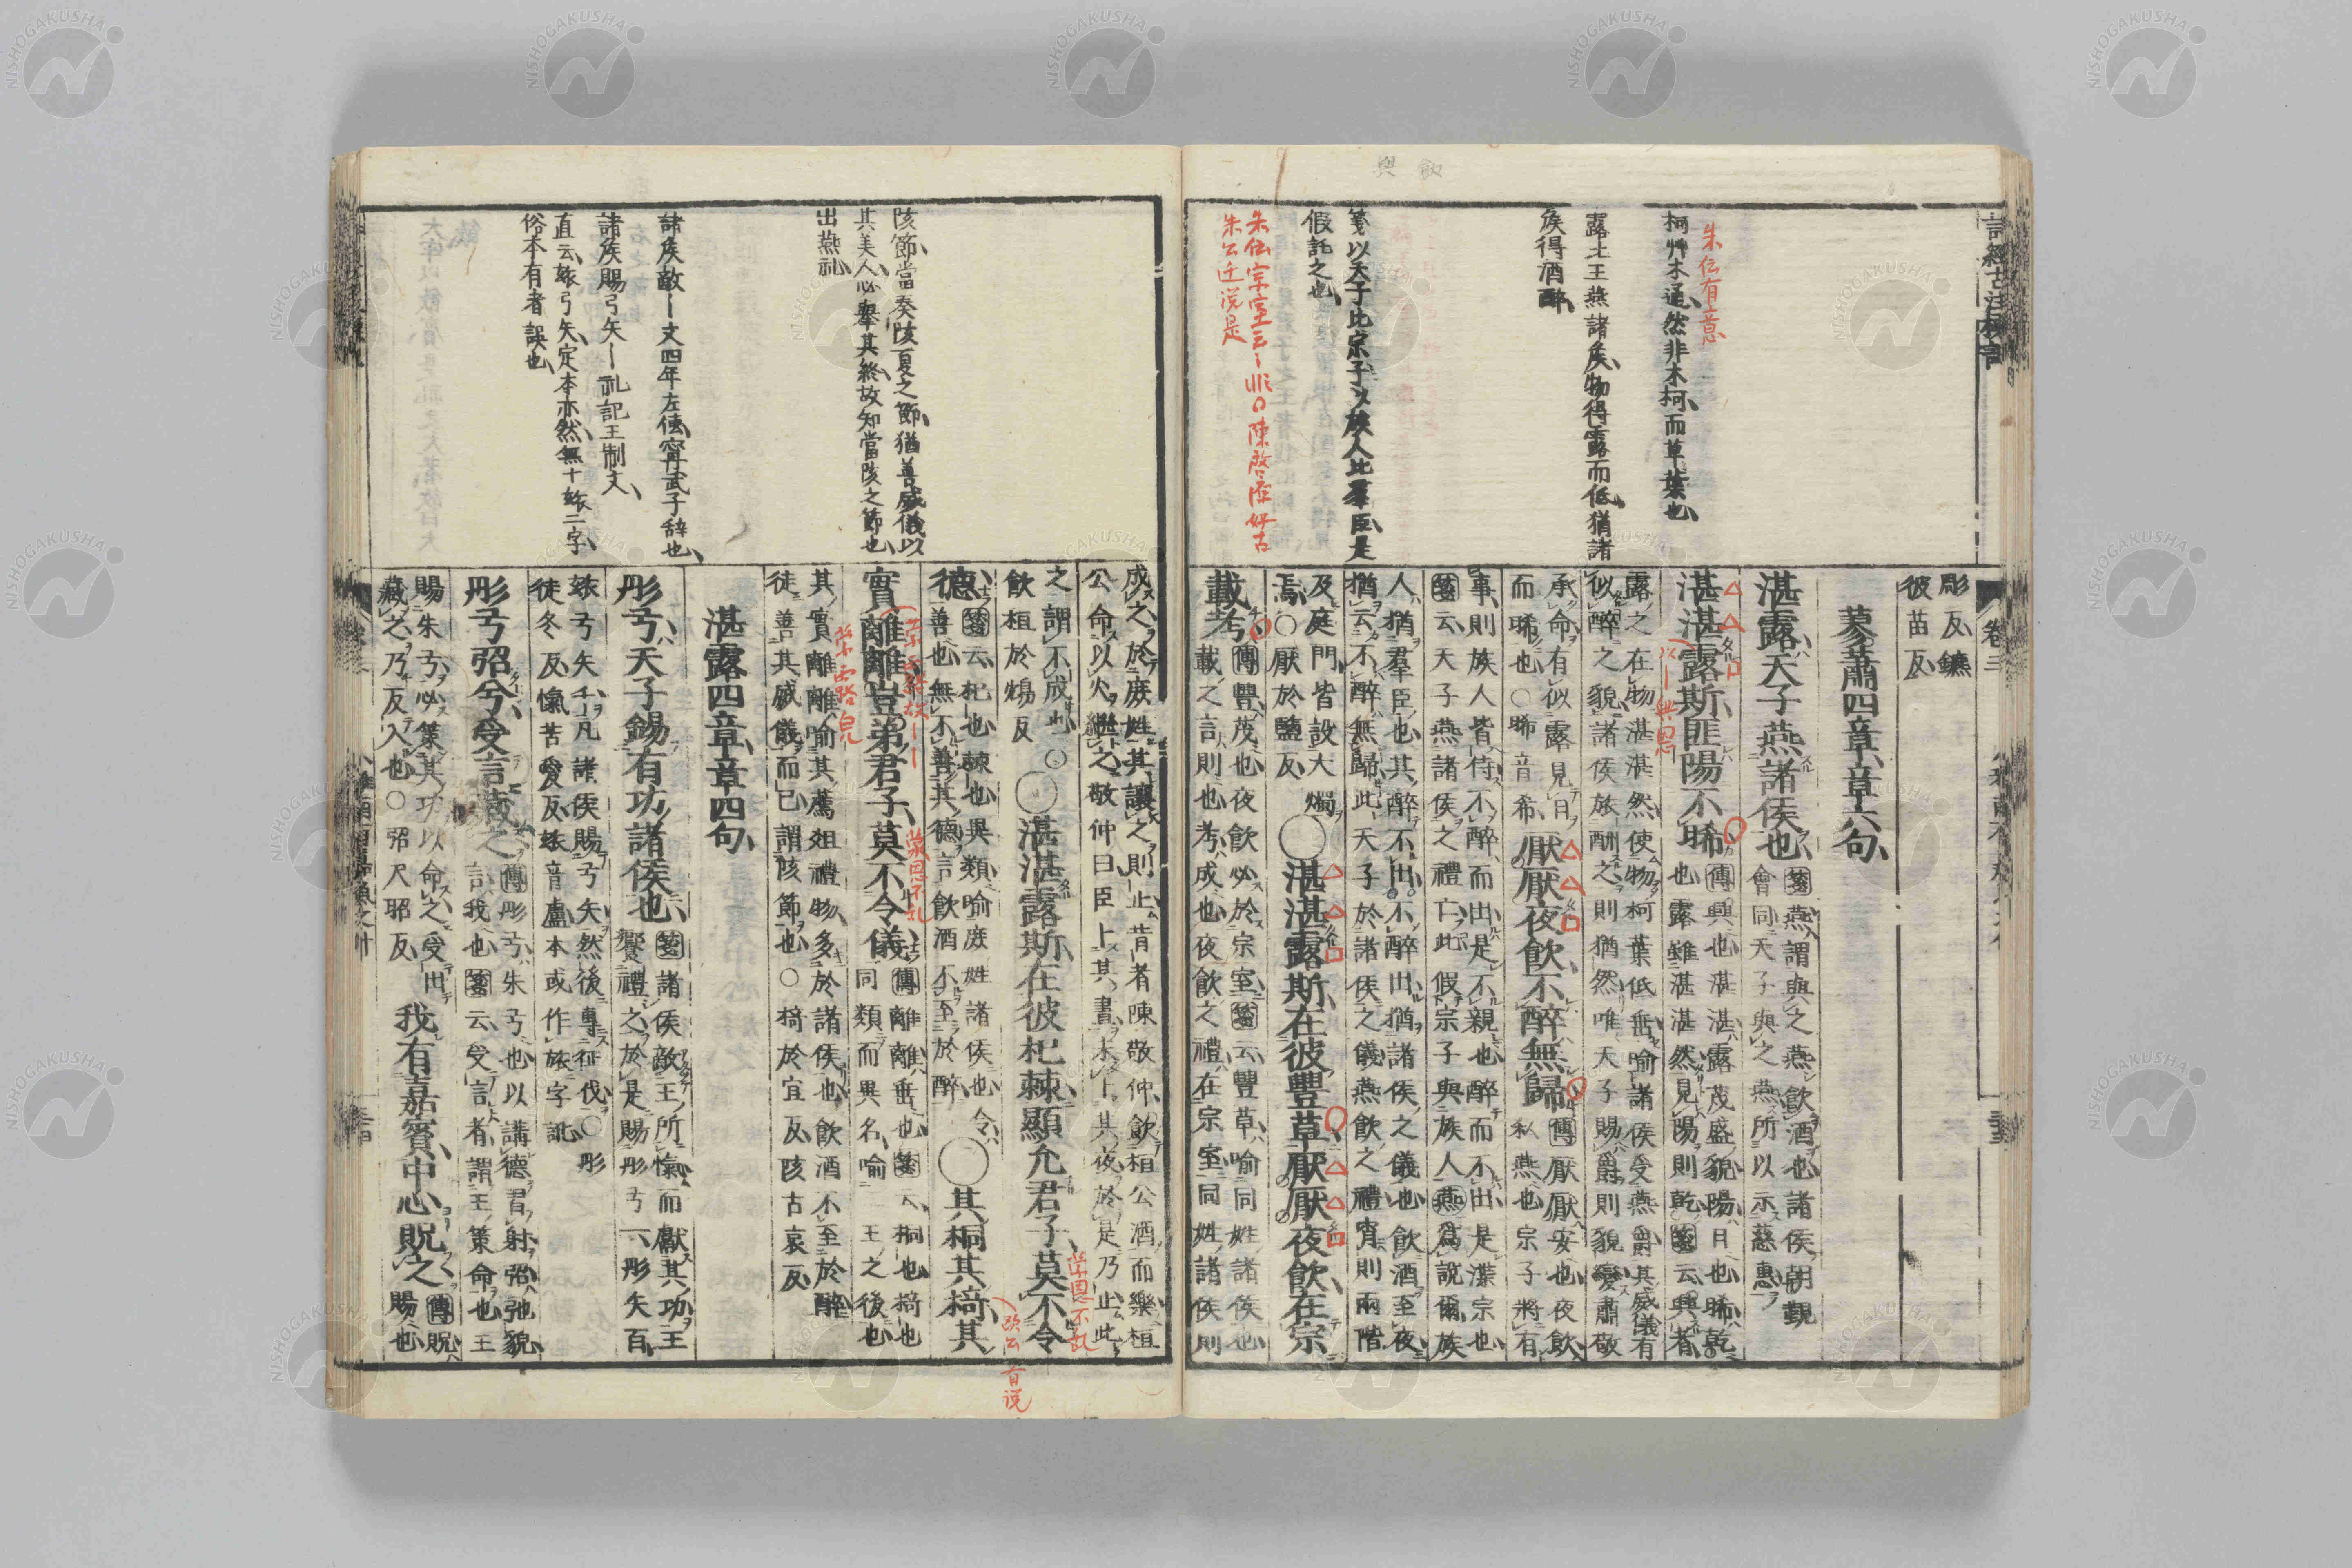 與 飲
朱伝有意
柯艸木通、然非木柯、而草葉也、
露上王燕諸矦、物得露而低、猶諸
矦得酒醉、
箋以天子比宗子、以族人比羣臣、是
假託之也、
朱公迁说是
彫反鑣
彼苗反
蓼蕭四章、章六句、
湛露、天子燕諸侯也、
箋燕、謂與之燕飲酒也、諸侯朝覲
會同、天子與之燕、所以示慈惠、
湛湛露斯、匪陽不晞
傳興也、湛湛、露茂盛貌、陽、日也、晞、乾
也、露雖湛湛然、見陽則乾、箋云、興者、
露之在物湛湛然、使物柯葉低垂、喻諸侯受燕爵、其威儀有
似醉之貌、諸侯旅酬之、則猶然、唯天子賜爵、則貌變肅敬
承命、有似露見日、
而晞也○晞音希、
厭厭夜飲、不醉無歸
傳厭厭、安也、夜飲、
私燕也、宗子將有
事、則族人皆侍、不醉而出、是不親也、醉而不出、是渫宗也、
箋云、天子燕諸侯之禮亡、此假宗子與族人燕爲說爾、族
人猶羣臣也、其醉不出、不醉出、猶諸侯之儀也、飲酒至夜、
猶云、不醉無歸、此天子於諸侯之儀、燕飲之禮、宵則兩階
及庭門、皆設大燭
焉、○厭於鹽反、
○湛湛露斯、在彼豐草、厭厭夜飲、在宗
載考
傳豐、茂也、夜飲必於宗室、箋云、豐草、喻同姓諸侯也、
載之言則也、考、成也、夜飲之禮、在宗室、同姓諸侯則
卷三
陔節、當奏陔夏之節、猶善威儀、以
其美人必舉其終、故知當陔之節也、
出燕礼、
諸矦敵ー文四年左傳甯武子辞也、
諸矦賜弓矢ー礼記王制文、
直云玈弓矢、定本亦然、無十玈二字、
俗本有者誤也、
成之、於庶姓、其讓之則止、昔者陳敬仲飲桓公酒而樂、桓
公命以火繼之、敬仲曰、臣卜其晝、未卜其夜、於是乃止、此
之謂不成也、○
飲桓於鴆反
○湛湛露斯、在彼杞棘、顯允君子、莫不令
德、
箋云、杞也棘也異類、喻庶姓諸侯也、令、
善也、無不善其德、言飲酒不至於醉、
○其桐其椅、其
實離離、豈弟君子、莫不令儀
傳離離、垂也、箋云、桐也椅也
同類而異名、喻二王之後也、
其實離離、喻其薦俎禮物、多於諸侯也、飲酒不至於醉、
徒善其威儀而已、謂陔節也、○椅於宜反、陔古哀反
湛露四章、章四句、
彤弓、天子錫有功諸侯也、
箋諸侯敵王所愾、而獻其功、王
饗禮之、於是賜彤弓一、彤矢百、
玈弓矢千、凡諸侯賜弓矢、然後專征伐、○彤
徒冬反、愾苦愛反、玈音盧、本或作旅字訛、
彤弓弨兮、受言藏之、
傳彤弓、朱弓也、以講德習射、弨、弛貌、
言、我也、箋云、受言者、謂王策命也、王
賜朱弓、必策其功以命之、受出
藏之、乃反入也、○弨尺昭反
我有嘉賓、中心貺之、
傳貺、
賜也